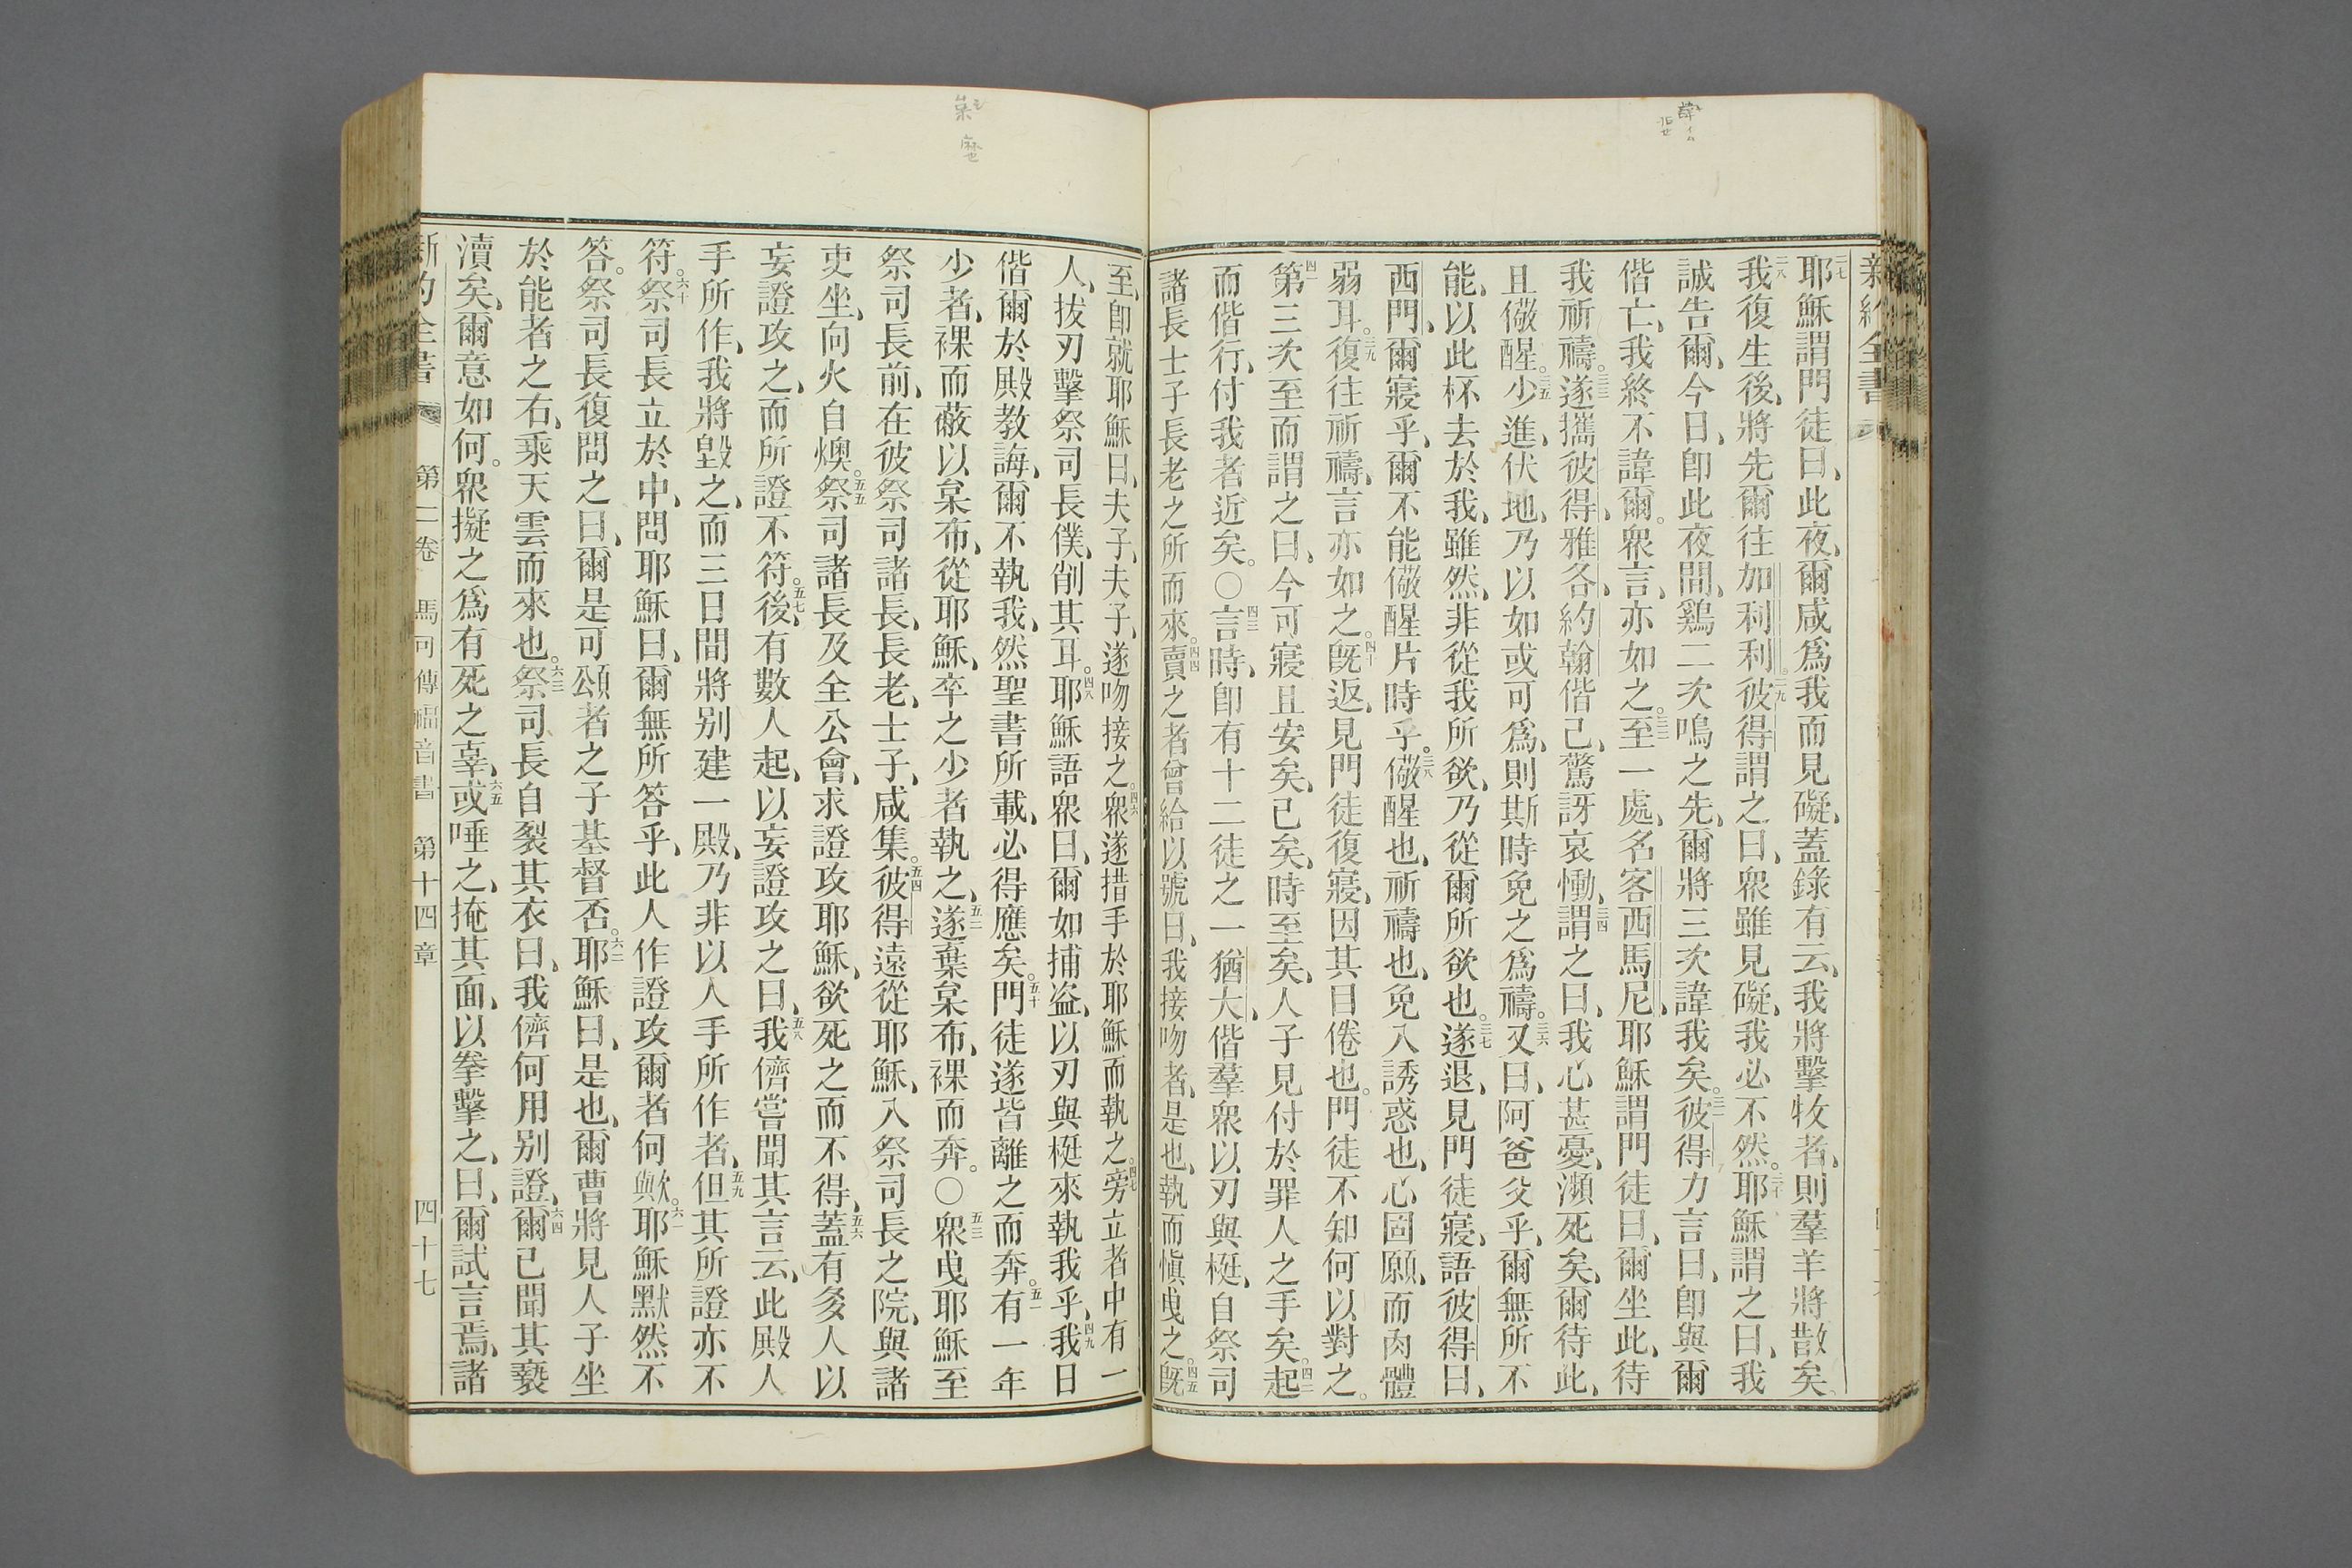 新約全書
二七耶穌謂門徒曰、此夜、爾咸爲我而見礙、蓋錄有云、我將擊牧者、則羣羊將散矣。
二八我復生後、將先爾往加利利。二九彼得謂之曰、衆雖見礙、我必不然。三十耶穌謂之曰、我
誠告爾、今日、卽此夜間、鷄二次鳴之先、爾將三次諱我矣。三一彼得力言曰、卽與爾
偕亡、我終不諱爾。衆言、亦如之。三二至一處、名客西馬尼、耶穌謂門徒曰、爾坐此、待
我祈禱。三三遂攜彼得、雅各、約翰偕己、驚訝哀慟、三四謂之曰、我心甚憂、瀕死矣、爾待此、
且儆醒。三五少進、伏地、乃以如或可爲、則斯時免之爲禱。三六又曰、阿爸父乎、爾無所不
能、以此杯去於我、雖然、非從我所欲、乃從爾所欲也。三七遂退、見門徒寢、語彼得曰、
西門、爾寢乎、爾不能儆醒片時乎。三八儆醒也、祈禱也、免入誘惑也、心固願、而肉體
弱耳。三九復往祈禱、言亦如之。四十旣返、見門徒復寢、因其目倦也。門徒不知何以對之。
四一第三次至而謂之曰、今可寢且安矣、已矣、時至矣、人子見付於罪人之手矣。四二起
而偕行、付我者近矣。〇四三言時、卽有十二徒之一猶大、偕羣衆以刃與梃、自祭司
諸長士子長老之所而來。四四賣之者曾給以號曰、我接吻者、是也、執而愼曳之。四五旣
至、卽就耶穌曰、夫子、夫子、遂吻接之。四六衆遂措手於耶穌而執之。四七旁立者中有一
人、拔刃擊祭司長僕、削其耳。四八耶穌語衆曰、爾如捕盜、以刃與梃來執我乎、四九我日
偕爾於殿教誨、爾不執我、然聖書所載、必得應矣。五十門徒遂皆離之而奔。五一有一年
少者、裸而蔽以枲布、從耶穌、卒之少者執之、五二遂棄枲布、裸而奔。〇五三衆曳耶穌至
祭司長前、在彼祭司諸長、長老、士子、咸集。五四彼得遠從耶穌、入祭司長之院、與諸
吏坐、向火自燠。五五祭司諸長及全公會、求證攻耶穌、欲死之而不得、五六蓋有多人以
妄證攻之、而所證不符。五七後、有數人起、以妄證攻之曰、五八我儕嘗聞其言云、此殿人
手所作、我將毀之、而三日間將別建一殿、乃非以人手所作者、五九但其所證亦不
符。六十祭司長立於中、問耶穌曰、爾無所答乎、此人作證攻爾者何歟。六一耶穌默然不
答。祭司長復問之曰、爾是可頌者之子基督否。六二耶穌曰、是也、爾曹將見人子坐
於能者之右、乘天雲而來也。六三祭司長自裂其衣、曰、我儕何用別證、六四爾已聞其褻
瀆矣、爾意如何。衆擬之爲有死之辜、六五或唾之、掩其面、以拳擊之、曰、爾試言焉、諸
新約全書 第二卷 馬可傳福音書 第十四章 四十七